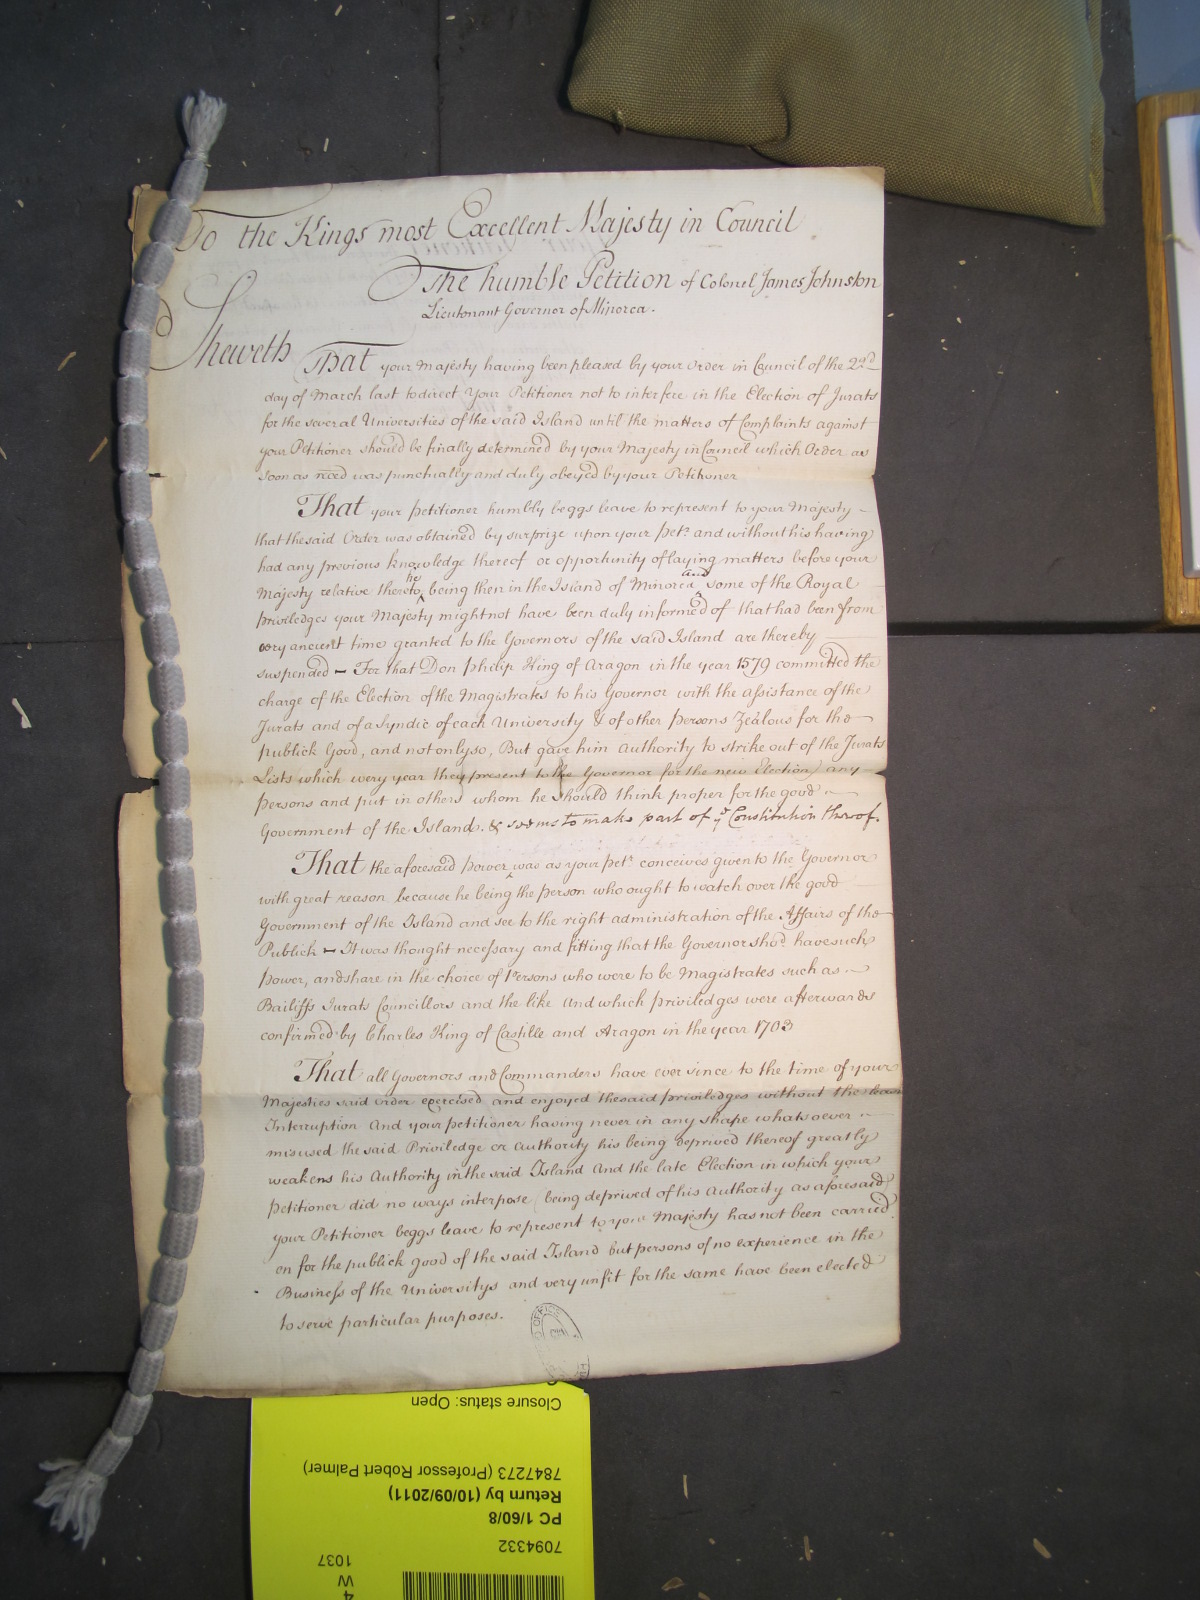 To the Kings most Excellent Majesty in Council
The humble Petition of Colonel James Johnston
Lieutenant Governor of Minorca.
Sheweth That your Majesty having been pleased by your Order in Council of the 22d
day of March last to direct Your Petitioner not to interfere in the Election of Jurats
for the several Universities of the said Island until the matters of Complaints against
your Petitioner should be finally determined by your Majesty in Council which Order as
soon as reced was punctually and duly obeyed by your Petitioner
That your Petitioner humbly beggs leave to represent to your Majesty
that the said Order was obtained by surprize upon your Petr. and without his having
had any previous knowledge thereof or opportunity of laying matters before your
Majesty relative thereto, he being then in the Island of Minorca and some of the Royal
priviledges your Majesty might not have been duly informed of that had been from
very ancient time granted to the Governors of the said Island are thereby
suspended – For that Don Philip King of Aragon in the year 1579 committed the
charge of the Election of the Magistrates to his Governor with the assistance of the
Jurats and of a Syndic of each University & of other Persons Zealous for the
publick Good, and not only so, But gave him authority to strike out of the Jurats
Lists which every year they present to the Governor for the new Election) any
Persons and put in others whom he should think proper for the good
Government of the Island. & seems to make part of ye Constitution thereof.
That the aforesaid Power was as your Petr. conceives given to the Governor
with great reason because he being the person who ought to watch over the good
Government of the Island and see to the right administration of the Affairs of the
Publick – It was thought necessary and fitting that the Governor shod. have such
power, and share in the choice of Persons who were to be Magistrates such as
Bailiffs Jurats Councillors and the like And which priviledges were afterwards
confirmed by Charles King of Castille and Aragon in the year 1703
That all Governors and Commanders have ever since to the time of your
Majesties said order exercised and enjoyed the said priviledges without the least
Interruption And your petitioner having never in any shape whatsoever
misused the said Priviledge or authority his being deprived thereof greatly
weakens his Authority in the said Island And the late Election in which your
Petitioner did no ways interpose (being deprived of his Authority as aforesaid)
your Petitioner beggs leave to represent to your Majesty has not been carried
on for the publick good of the said Island but persons of no experience in the
Business of the Universitys and very unfit for the same have been elected
to serve particular purposes.
Closure status: Open
7847273 (Professor Robert Palmer)
Return by (10/09/2011)
PC 1/60/8
7094332
1037
W
4